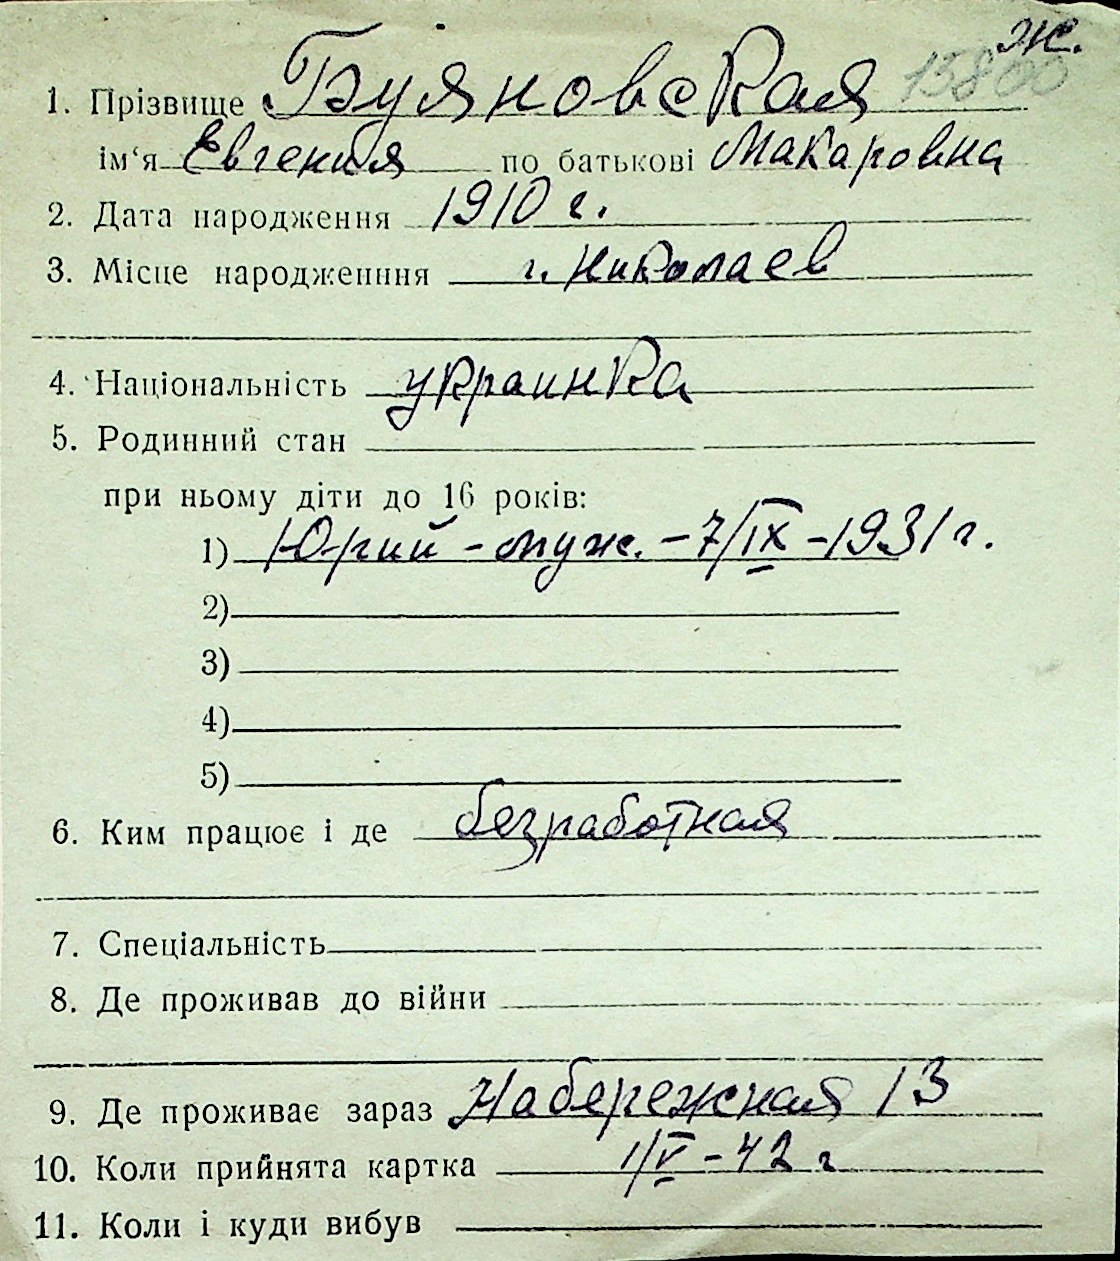 ж.
1. Прізвище Буяновская 15800
ім‘я Евгения по батькові Макаровна
2. Дата народження 1910 г.
3. Місце народженння г. Николаев
4. Національність украинка
5. Родинний стан
при ньому діти до 16 років:
1) Юрий - муж. - 7/IX - 1931 г.
2)
3)
4)
5)
6. Ким працює і де безработная
7. Спеціальність
8. Де проживав до війни
9. Де проживає зараз Набережная 13
10. Коли прийнята картка 1/V - 42 г
11. Коли і куди вибув